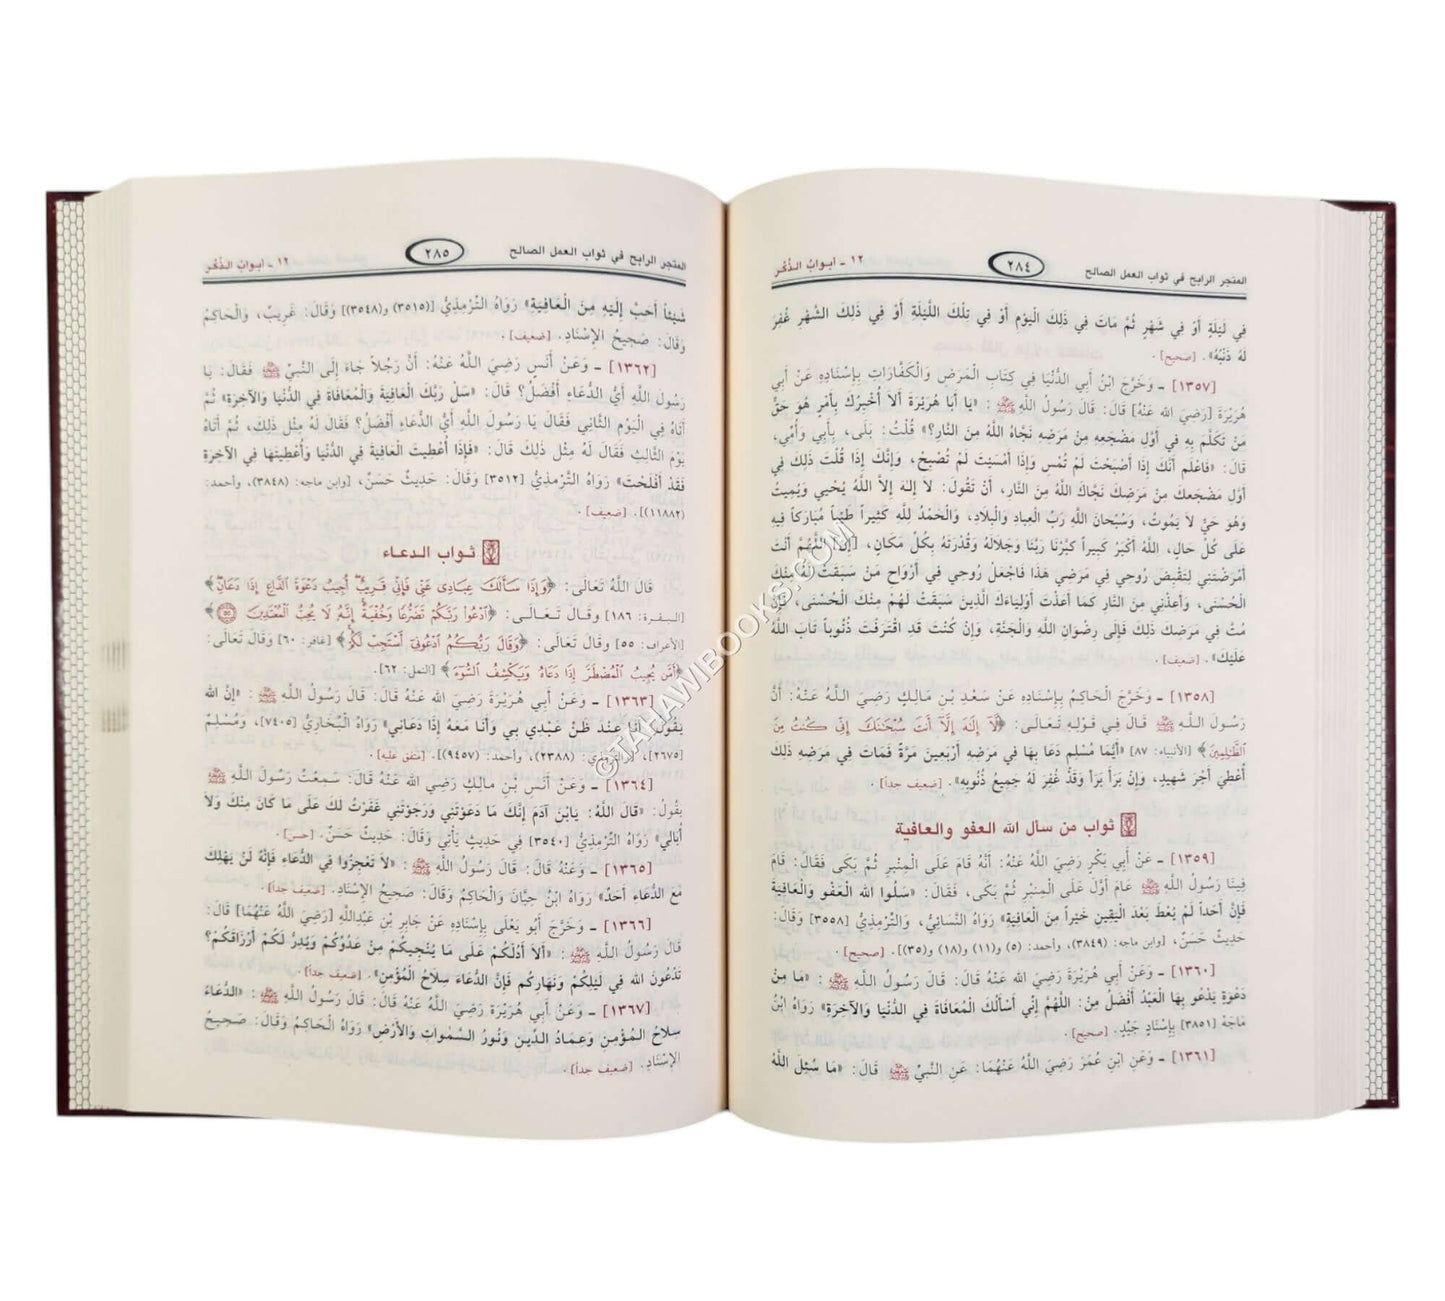 المتجر الرابح في ثواب العمل الصالح ٢٨٤ ١٢ - أبواب الذكر
فِي لَيْلَةٍ أَوْ فِي شَهْرٍ ثُمَّ مَاتَ فِي ذَلِكَ الْيَوْمِ أَوْ فِي تِلْكَ اللَّيْلَةِ أَوْ فِي ذَلِكَ الشَّهْرِ غُفِرَ
لَهُ ذَنْبُهُ». [صحيح].
[١٣٥٧] ـ وَخَرَّجَ ابْنُ أَبِي الدُّنْيَا فِي كِتَابِ الْمَرَضِ وَالْكَفَّارَاتِ بِإِسْنَادِهِ عَنْ أَبِي
هُرَيْرَةَ [رَضِيَ الله عَنْهُ] قَالَ: قَالَ رَسُولُ اللَّهِ ﷺ: «يَا أَبَا هُرَيْرَةَ أَلاَ أُخْبِرُكَ بِأَمْرٍ هُوَ حَقٌّ
مَنْ تَكَلَّمَ بِهِ فِي أَوَّلِ مَضْجَعِهِ مِنْ مَرَضِهِ نَجَّاهُ اللَّهُ مِنَ النَّارِ؟» قُلْتُ: بَلَى، بِأَبِي وَأُمِّي،
قَالَ: «فَاعْلَم أَنَّكَ إِذَا أَصْبَحْتَ لَمْ تُمْسِ وَإِذَا أَمْسَيْتَ لَمْ تُصْبِحْ، وَإِنَّكَ إِذَا قُلْتَ ذَلِكَ فِي
أَوَّلِ مَضْجَعِكَ مِنْ مَرَضِكَ نَجَّاكَ اللَّهُ مِنَ النَّارِ، أَنْ تَقُولَ: لاَ إِلٰهَ إِلاَّ اللَّهُ يُحْيِي وَيُمِيتُ
وَهُوَ حَيٌّ لاَ يَمُوتُ، وَسُبْحَانَ اللَّهِ رَبِّ الْعِبَادِ وَالْبِلَادِ، وَالْحَمْدُ لِلَّهِ كَثِيراً طَيِّباً مُبَارَكاً فِيهِ
عَلَى كُلِّ حَالٍ، اللَّهُ أَكْبَرُ كَبِيراً كِبْرِيَاءُ رَبِّنَا وَجَلَالَهُ وَقُدْرَتَهُ بِكُلِّ مَكَانٍ، اللَّهُمَّ أَنْتَ
أَمْرَضْتَنِي لِتَقْبِضَ رُوحِي فِي مَرَضِي هَذَا فَاجْعَلْ رُوحِي فِي أَرْوَاحِ مَنْ سَبَقَتْ لَهُ مِنْكَ
الْحُسْنَى، وَأَعِذْنِي مِنَ النَّارِ كَمَا أَعَذْتَ أَوْلِيَاءَكَ الَّذِينَ سَبَقَتْ لَهُمْ مِنْكَ الْحُسْنَى، فَإِنْ
مُتَّ فِي مَرَضِكَ ذَلِكَ فَإِلَى رِضْوَانِ اللَّهِ وَالْجَنَّةِ، وَإِنْ كُنْتَ قَدِ اقْتَرَفْتَ ذُنُوباً تَابَ اللَّهُ
عَلَيْكَ». [ضعيف].
[١٣٥٨] ـ وَخَرَّجَ الْحَاكِمُ بِإِسْنَادِهِ عَنْ سَعْدِ بْنِ مَالِكٍ رَضِيَ اللَّهُ عَنْهُ: أَنَّ
رَسُولَ اللَّهِ ﷺ قَالَ فِي قَوْلِهِ تَعَالَى: ﴿لَا إِلَهَ إِلَّا أَنتَ سُبْحَانَكَ إِنِّي كُنتُ مِنَ
الظَّالِمِينَ﴾ [الأنبياء: ٨٧] «أَيُّمَا مُسْلِمٍ دَعَا بِهَا فِي مَرَضِهِ أَرْبَعِينَ مَرَّةً فَمَاتَ فِي مَرَضِهِ ذَلِكَ
أُعْطِيَ أَجْرَ شَهِيدٍ، وَإِنْ بَرَأَ بَرَأَ وَقَدْ غُفِرَ لَهُ جَمِيعُ ذُنُوبِهِ». [ضعيف جداً].
ثواب من سأل الله العفو والعافية
[١٣٥٩] ـ عَنْ أَبِي بَكْرٍ رَضِيَ اللَّهُ عَنْهُ: أَنَّهُ قَامَ عَلَى الْمِنْبَرِ ثُمَّ بَكَى فَقَالَ: قَامَ
فِينَا رَسُولُ اللَّهِ ﷺ عَامَ أَوَّلَ عَلَى الْمِنْبَرِ ثُمَّ بَكَى، فَقَالَ: «سَلُوا الله الْعَفْوَ وَالْعَافِيَةَ
فَإِنَّ أَحَداً لَمْ يُعْطَ بَعْدَ الْيَقِينِ خَيْراً مِنَ الْعَافِيَةِ» رَوَاهُ النَّسَائِيُّ، وَالتِّرْمِذِيُّ [٣٥٥٨] وَقَالَ:
حَدِيثٌ حَسَنٌ، [وابن ماجه: (٣٨٤٩)، وأحمد: (٥) و(١١) و(١٨) و(٣٥)]. [صحيح].
[١٣٦٠] ـ وَعَنْ أَبِي هُرَيْرَةَ رَضِيَ الله عَنْهُ قَالَ: قَالَ رَسُولُ اللَّهِ ﷺ: «مَا مِنْ
دَعْوَةٍ يَدْعُو بِهَا الْعَبْدُ أَفْضَلَ مِنْ: اللَّهُمَّ إِنِّي أَسْأَلُكَ الْمُعَافَاةَ فِي الدُّنْيَا وَالآخِرَةِ» رَوَاهُ ابْنُ
مَاجَهْ [٣٨٥١] بِإِسْنَادٍ جَيِّدٍ. [صحيح].
[١٣٦١] ـ وَعَنِ ابْنِ عُمَرَ رَضِيَ اللَّهُ عَنْهُمَا: عَنِ النَّبِيِّ ﷺ قَالَ: «مَا سُئِلَ اللَّهُ
المتجر الرابح في ثواب العمل الصالح ٢٨٥ ١٢ - أبواب الذكر
شَيْئاً أَحَبَّ إِلَيْهِ مِنَ الْعَافِيَةِ» رَوَاهُ التِّرْمِذِيُّ [(٣٥١٥) و(٣٥٤٨)] وَقَالَ: غَرِيبٌ، وَالْحَاكِمُ
وَقَالَ: صَحِيحُ الإِسْنَادِ. [ضعيف].
[١٣٦٢] ـ وَعَنْ أَنَسٍ رَضِيَ اللَّهُ عَنْهُ: أَنَّ رَجُلاً جَاءَ إِلَى النَّبِيِّ ﷺ فَقَالَ: يَا
رَسُولَ اللَّهِ أَيُّ الدُّعَاءِ أَفْضَلُ؟ قَالَ: «سَلْ رَبَّكَ الْعَافِيَةَ وَالْمُعَافَاةَ فِي الدُّنْيَا وَالآخِرَةِ» ثُمَّ
أَتَاهُ فِي الْيَوْمِ الثَّانِي فَقَالَ يَا رَسُولَ اللَّهِ أَيُّ الدُّعَاءِ أَفْضَلُ؟ فَقَالَ لَهُ مِثْلَ ذَلِكَ، ثُمَّ أَتَاهُ
يَوْمَ الثَّالِثِ فَقَالَ لَهُ مِثْلَ ذَلِكَ قَالَ: «فَإِذَا أُعْطِيتَ الْعَافِيَةَ فِي الدُّنْيَا وَأُعْطِيتَهَا فِي الآخِرَةِ
فَقَدْ أَفْلَحْتَ» رَوَاهُ التِّرْمِذِيُّ [٣٥١٢] وَقَالَ: حَدِيثٌ حَسَنٌ، [وابن ماجه: (٣٨٤٨)، وأحمد:
(١١٨٨٢)]. [ضعيف].
ثواب الدعاء
قَالَ اللَّهُ تَعَالَى: ﴿وَإِذَا سَأَلَكَ عِبَادِي عَنِّي فَإِنِّي قَرِيبٌ أُجِيبُ دَعْوَةَ الدَّاعِ إِذَا دَعَانِ﴾
[البقرة: ١٨٦] وَقَالَ تَعَالَى: ﴿ادْعُوا رَبَّكُمْ تَضَرُّعًا وَخُفْيَةً إِنَّهُ لَا يُحِبُّ الْمُعْتَدِينَ﴾
[الأعراف: ٥٥] وقَالَ تَعَالَى: ﴿وَقَالَ رَبُّكُمُ ادْعُونِي أَسْتَجِبْ لَكُمْ﴾ [غافر: ٦٠] وَقَالَ تَعَالَى:
﴿أَمَّن يُجِيبُ الْمُضْطَرَّ إِذَا دَعَاهُ وَيَكْشِفُ السُّوءَ﴾ [النمل: ٦٢].
[١٣٦٣] ـ وَعَنْ أَبِي هُرَيْرَةَ رَضِيَ اللَّهُ عَنْهُ قَالَ: قَالَ رَسُولُ اللَّهِ ﷺ: «إِنَّ الله
يَقُولُ: أَنَا عِنْدَ ظَنِّ عَبْدِي بِي وَأَنَا مَعَهُ إِذَا دَعَانِي» رَوَاهُ الْبُخَارِيُّ [٧٤٠٥]، وَمُسْلِمٌ
[٢٦٧٥]، [والترمذي: (٢٣٨٨)، وأحمد: (٩٤٥٧)]. [متفق عليه].
[١٣٦٤] ـ وَعَنْ أَنَسِ بْنِ مالِكٍ رَضِيَ الله عَنْهُ قَالَ: سَمِعْتُ رَسُولَ اللَّهِ ﷺ
يَقُولُ: «قَالَ اللَّهُ: يَابْنَ آدَمَ إِنَّكَ مَا دَعَوْتَنِي وَرَجَوْتَنِي غَفَرْتُ لَكَ عَلَى مَا كَانَ مِنْكَ وَلاَ
أُبَالِي» رَوَاهُ التِّرْمِذِيُّ [٣٥٤٠] فِي حَدِيثٍ يَأْتِي وَقَالَ: حَدِيثٌ حَسَنٌ. [حسن].
[١٣٦٥] ـ وَعَنْهُ قَالَ: قَالَ رَسُولُ اللَّهِ ﷺ: «لاَ تَعْجِزُوا فِي الدُّعَاءِ فَإِنَّهُ لَنْ يَهْلِكَ
مَعَ الدُّعَاءِ أَحَدٌ» رَوَاهُ ابْنُ حِبَّانَ وَالْحَاكِمُ وَقَالَ: صَحِيحُ الإِسْنَادِ. [ضعيف جداً].
[١٣٦٦] ـ وَخَرَّجَ أَبُو يَعْلَى بِإِسْنَادِهِ عَنْ جَابِرِ بْنِ عَبْدِاللَّهِ [رَضِيَ اللَّهُ عَنْهُمَا] قَالَ:
قَالَ رَسُولُ اللَّهِ ﷺ: «أَلاَ أَدُلُّكُمْ عَلَى مَا يُنْجِيكُمْ مِنْ عَدُوِّكُمْ وَيُدِرُّ لَكُمْ أَرْزَاقَكُمْ؟
تَدْعُونَ الله فِي لَيْلِكُمْ وَنَهَارِكُم فَإِنَّ الدُّعَاءَ سِلَاحُ الْمُؤْمِنِ». [ضعيف جداً].
[١٣٦٧] ـ وَعَنْ أَبِي هُرَيْرَةَ رَضِيَ الله عَنْهُ قَالَ: قَالَ رَسُولُ اللَّهِ ﷺ: «الدُّعَاءُ
سِلاَحُ الْمُؤْمِنِ وَعِمَادُ الدِّينِ وَنُورُ السَّمٰوَاتِ وَالأَرْضِ» رَوَاهُ الْحَاكِمُ وَقَالَ: صَحِيحُ
الإِسْنَادِ. [ضعيف جداً].
©TAHAWIBOOKS.COM